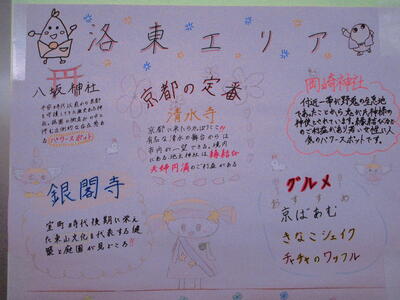 洛東エリア
八坂神社
平安時代以前から京都
パワースポット
京都の定番
清水寺
京都に来たらぜひここ!!
有名な清水の舞台からは
市内が一望できる。境内
にある地主神社は縁結び
夫婦円満のご利益がある
岡崎神社
付近一帯が野兎の生息地
であったことから兎が氏神様の
神使とされています。縁結びなどの
ご利益があり若い女性に人
気のパワースポットです。
銀閣寺
室町時代後期に栄え
た東山文化を代表する建
築と庭園が見どころ!!
グルメ
おすすめ
京ばあむ
きなこシェイク
チャチャのワッフル